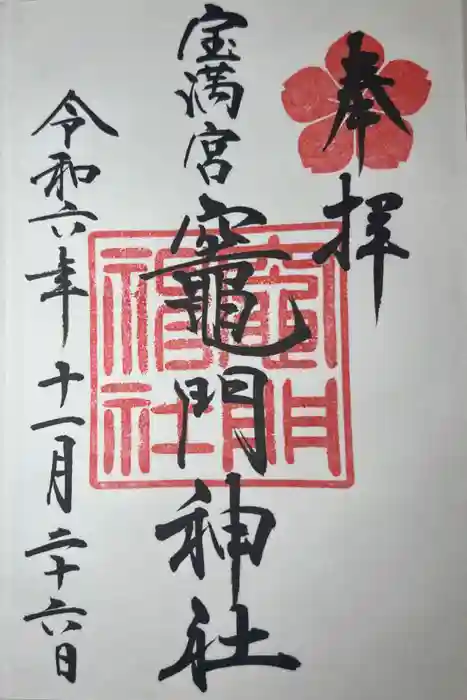 奉拝
宝満宮
竈門神社
竈門
神社
令和六年十一月二十六日